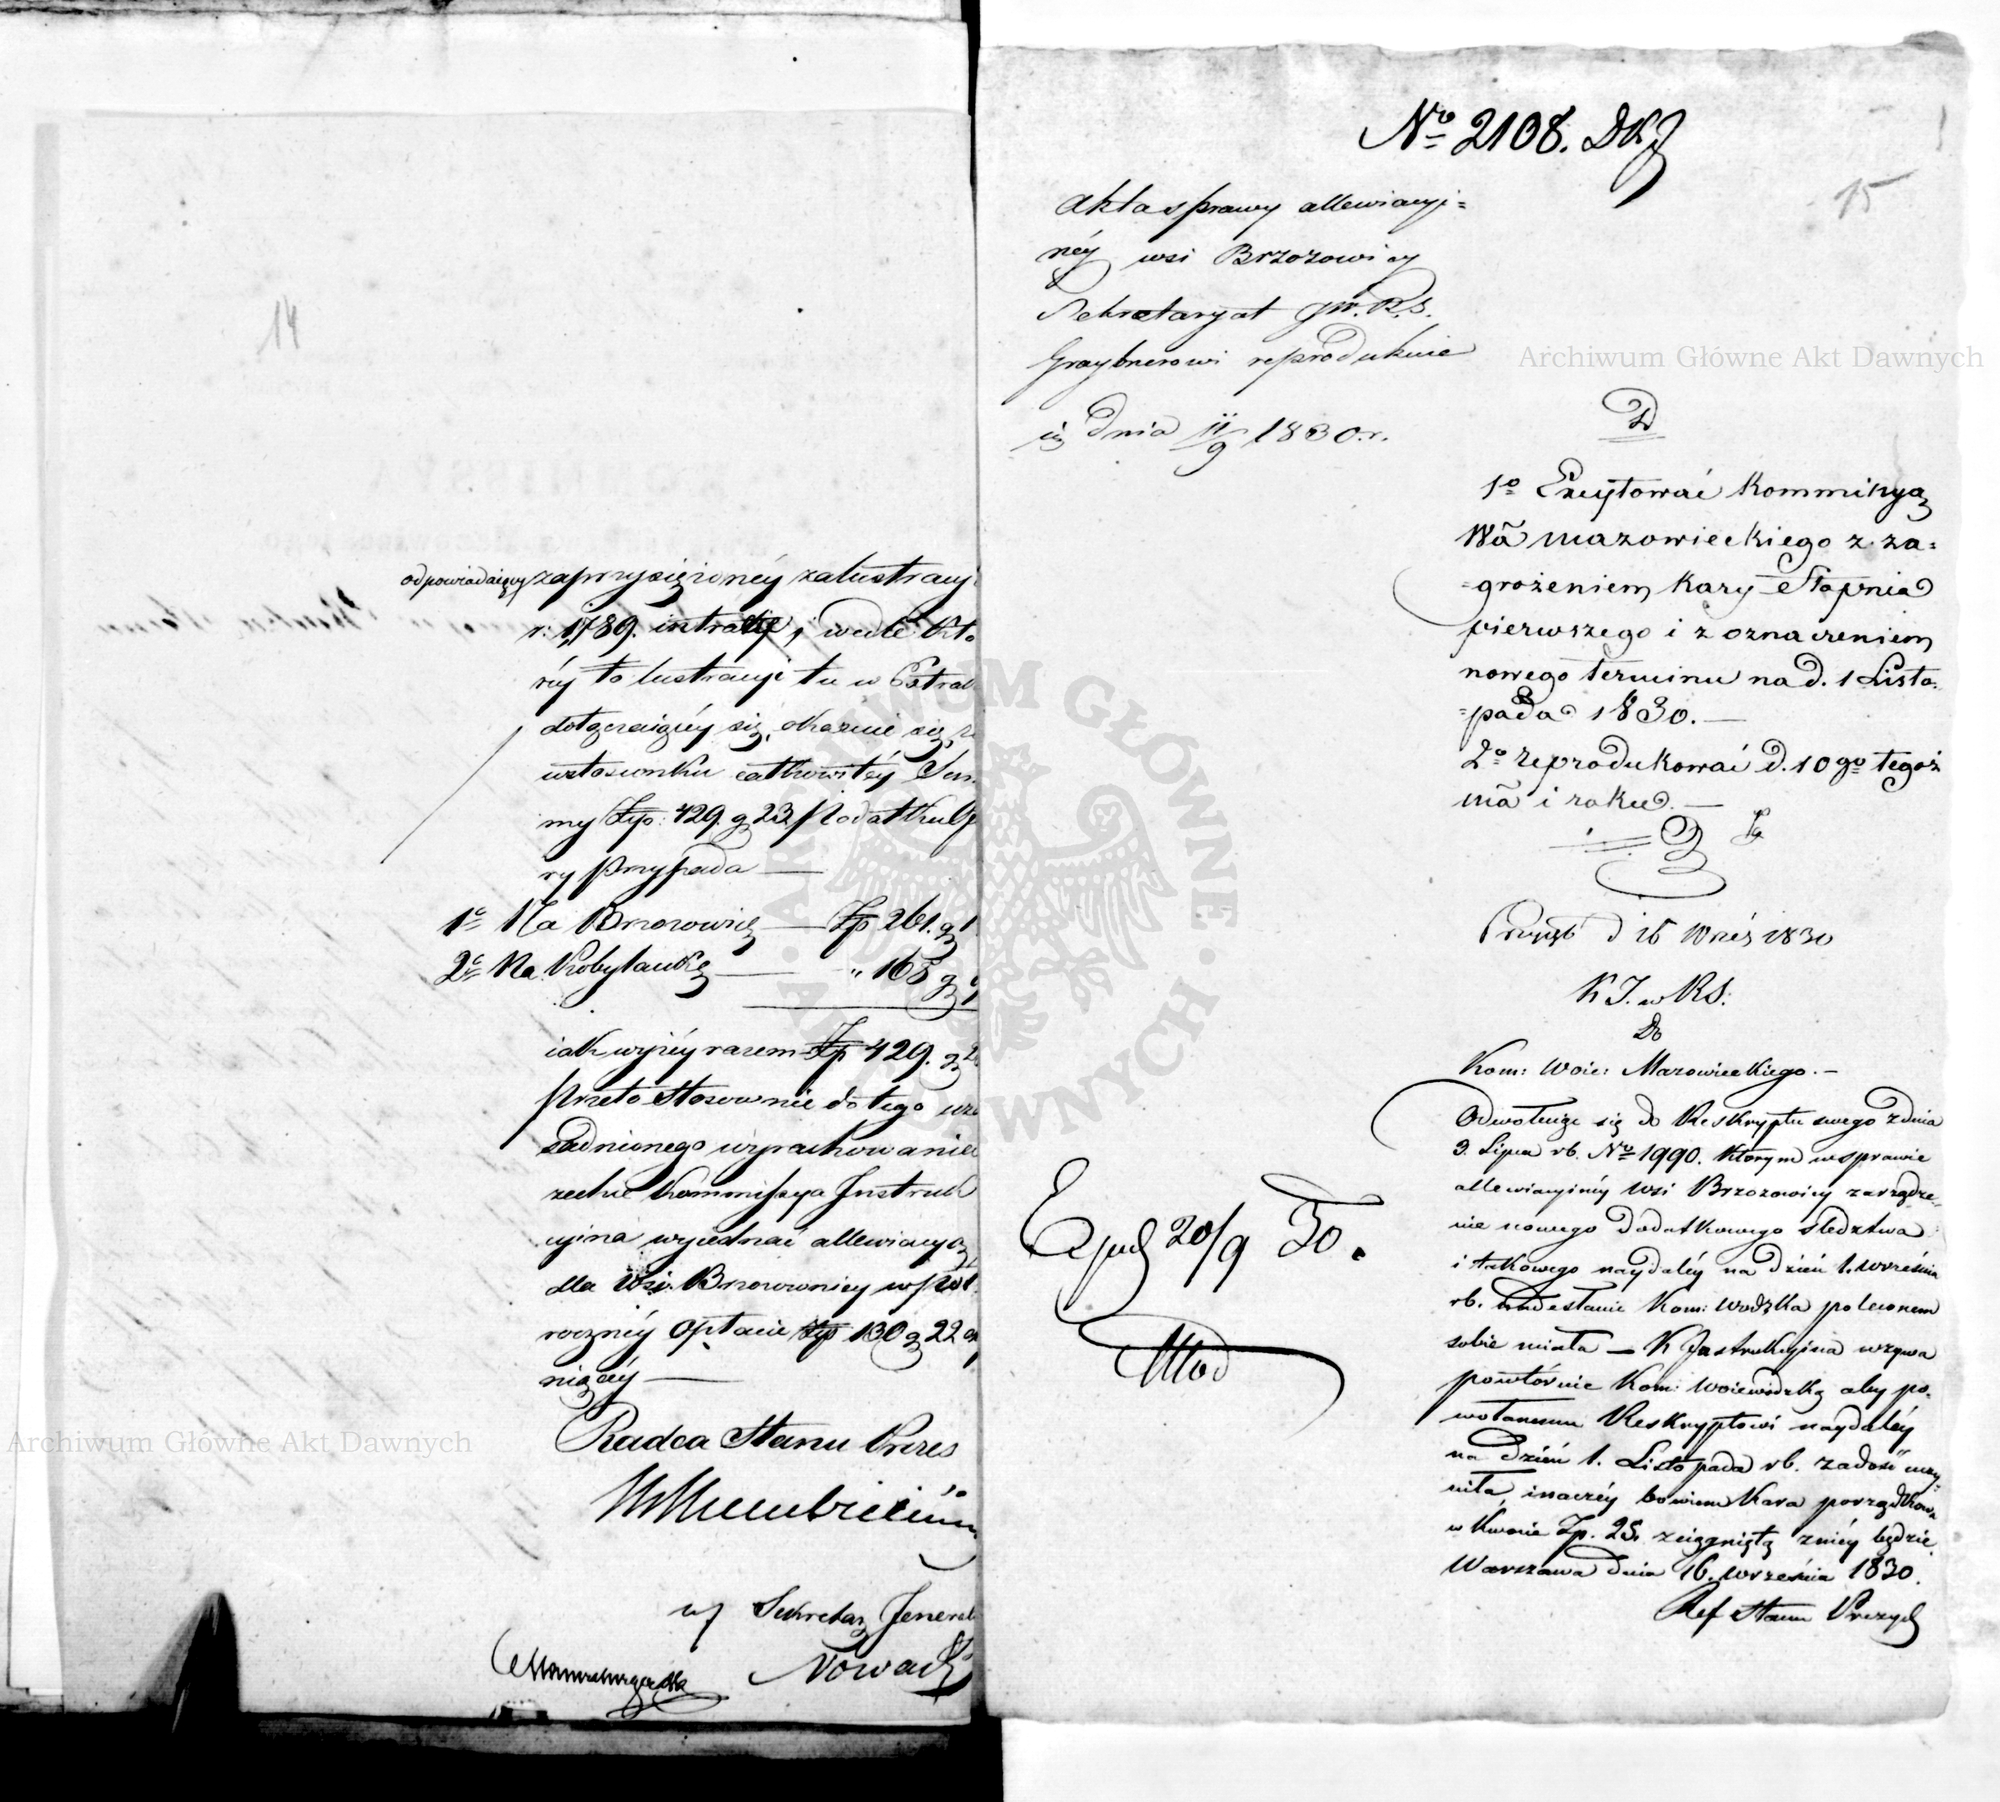 14
odpowiadaiący zaprzysiężonéy zalustracyi
r: 1789. intracie, wedle któ
réy to lustracyi tu w Extrak
dołączaiącéy się, okazuie się, że
wstosunku całkowitéy Sum
my Złp: 429. g 23 Podatku Ofia
ry przypada —
1o Na Brzozowicę — Złp 261. g 1
2o Na Kobylankę — " 168 g
iak wyżéy razem Złp 429. g 2
Przeto stosownie do tego uza
sadnionego wyrachowania
zechce Kommissya Instruk
cyina wyiednać allewiacyą
dla Wsi Brzozowicy w pół
rocznéy opłacie Złp 130 g 22
niżéy —
Radca Stanu Prezes
w/ Sekretarz Jeneral
Nowack
No 2108. DKJ
15
Akta sprawy allewiacyi=
néy wsi Brzozowicy
Sekretaryat JW. R.S.
Graybnerowi reprodukuie
iż dnia 11/9 1830.r.
D
1o Excytować Kommissyą
Wã mazowieckiego z za=
=grożeniem kary Stopnia
pierwszego i z oznaczeniem
nowego terminu na d. 1 Listo=
=pada 1830. —
2o reprodukować d. 10go tegoż
mã i roku. —
d 16 Wrześ 1830
K J. w KS:
Do
Kom: Woie: Mazowieckiego. —
Odwołuiąc się do Reskryptu swego z dnia
3. Lipca rb. No 1990. którym w sprawie
allewiacyinéy wsi Brzozowicy zarządze=
nie nowego dodatkowego śledztwa
i takowego naydaléy na dzień 1. września
rb. nadesłanie Kom: Wodzka poleconem
sobie miała — K Instrukcyina wzywa
powtórnie Kom: Woiewodzką aby po=
wołanemu Reskryptowi naydaléy
na dzień 1. Listopada rb. zadość uczy=
niła, inaczéy bowiem kara porządkowa
w kwocie Zp. 25. zciągniętą zniéy będzie.
Warszawa dnia 16. września 1830.
Ref Stanu Prezyd
Exped 20/9 30.
Archiwum Główne Akt Dawnych
Archiwum Główne Akt Dawnych
ARCHIWUM GŁÓWNE AKT DAWNYCH